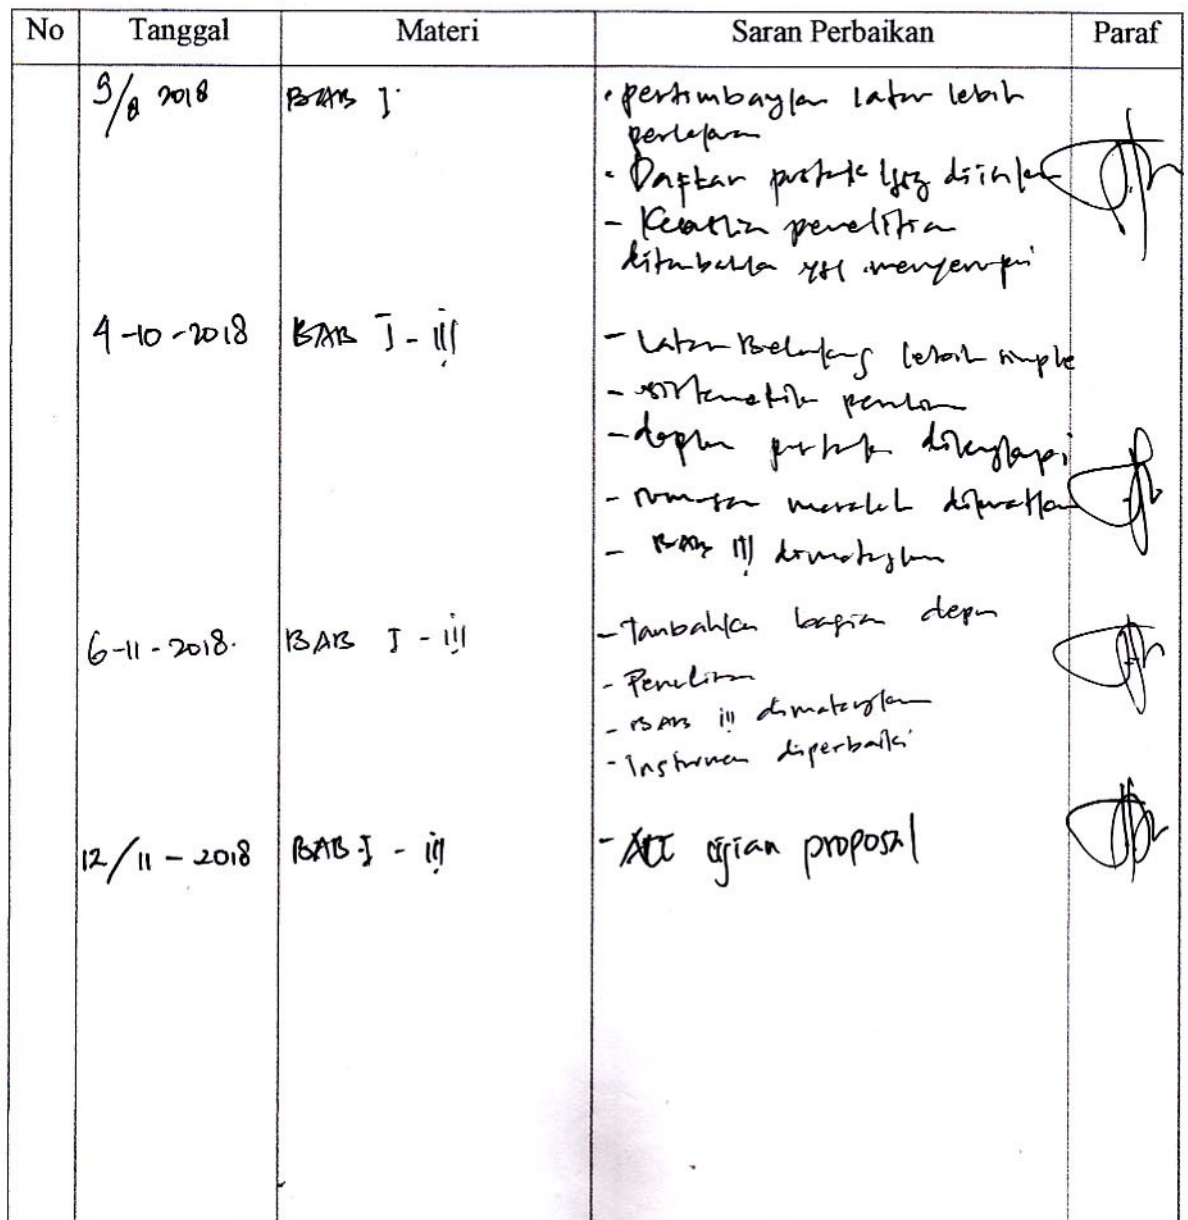 No Tanggal Materi Saran Perbaikan Paraf
9/8 2018 BAB I. • pertimbangkan latar lebih
• Daftar
- penelitian
ditambahkan yg menyerupai
4-10-2018 BAB I - III - Latar Belakang lebih simple
- sistematik
- dilengkapi
- rumusan masalah
- BAB III dimatangkan
6-11-2018. BAB I - III - Tambahkan bagian depan
- Penulisan
- BAB III dimatangkan
- Instrumen diperbaiki
12/11-2018 BAB I - III - ACC ujian proposal